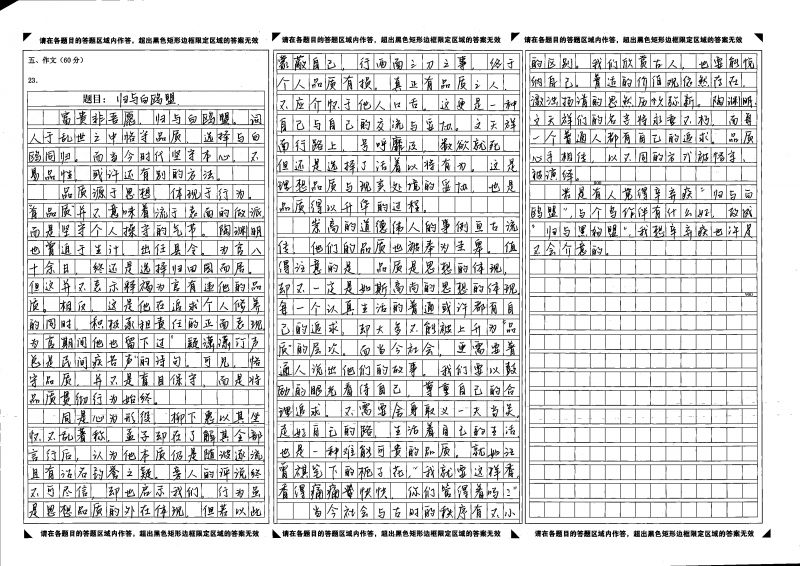 请在各题目的答题区域内作答，超出黑色矩形边框限定区域的答案无效
五、作文(60分)
23.
题目：归与白鸥盟
富贵非吾愿，归与白鸥盟。词
人于乱世之中恪守品质，选择与白
鸥同归。而当今时代坚守本心，不
易品性，或许还有别的方法。
品质源于思想，体现于行为。
贵品质"并不意味着流于表面的做派
而是坚守个人操守的气节。陶渊明
也曾追于生计，出任县令。为官八
十余日，终还是选择归田园而居。
但这并不表示转福为官有违他的品
质。相反，这是他在追求个人修养
的同时，积极承担责任的正面表现
为官期间他也留下过"疑潇潇
总是民间疾苦声"的诗句。可见，恪
守品质，并不是盲目保守，而是将
品质贯彻行为始终。
同是心为形役，柳下惠以其坐
怀不乱著称，孟子却在了解其全部
言行后，认为他本质仍是随波逐流
且有沽名钓誉之疑。旁人的评说终
不可尽信，却也启示我们。行为虽
是思想品质的外在体现，但若以此
请在各题目的答题区域内作答，超出黑色矩形边框限定区域的答案无效
请在各题目的答题区域内作答，超出黑色矩形边框限定区域的答案无效
蒙蔽自己，行两面三刀之事，终于
个人品质有损。真正有品质之人，
不应介怀于他人口舌。这更是一种
自己与自己的交流与妥协。文天祥
面行路上，号呼靡及，数欲就死
但还是选择了活着以将有为。这是
理想品质与现实处境的妥协，也是
品质得以升华的过程。
崇高的道德伟人的事例亘古流
传，他们的品质也被奉为圭臬。值
得注意的是，品质是思想的体现，
却不一定是如斯高尚的思想的体现
每一个认真生活的普通或许都有自
己的追求，却大多不能被上升为"品
质"的层次。而当今社会，更需要普
通人说出他们的故事。我们要以鼓
励的眼光看待自己，尊重自己的合
理追求。不需要舍身取义，大当关
走好自己的路，生活着自己的生活
也是一种难能可贵的品质。就如汪
曾祺笔下的栀子花，"我就要这样香，
香得痛痛快快，你们管得着吗？"
当今社会与古时的秩序有不小
请在各题目的答题区域内作答，超出黑色矩形边框限定区域的答案无效
请在各题目的答题区域内作答，超出黑色矩形边框限定区域的答案无效
的区别。我们欣赏古人，也要能悦
纳自己。普适的价值观依然存在，
激浊扬清的思想历久弥新。陶渊明、
文天祥们的名言将永垂不朽，而每
一个普通人都有自己的追求。品质
心手相传，以不同的方式被恪守、
被演绎。
若是有人觉得辛弃疾"归与白
鸥盟"，与个鸟作伴有什么好，改成
"归与黑豹盟"，我想辛弃疾也许是
不会介意的。
请在各题目的答题区域内作答，超出黑色矩形边框限定区域的答案无效